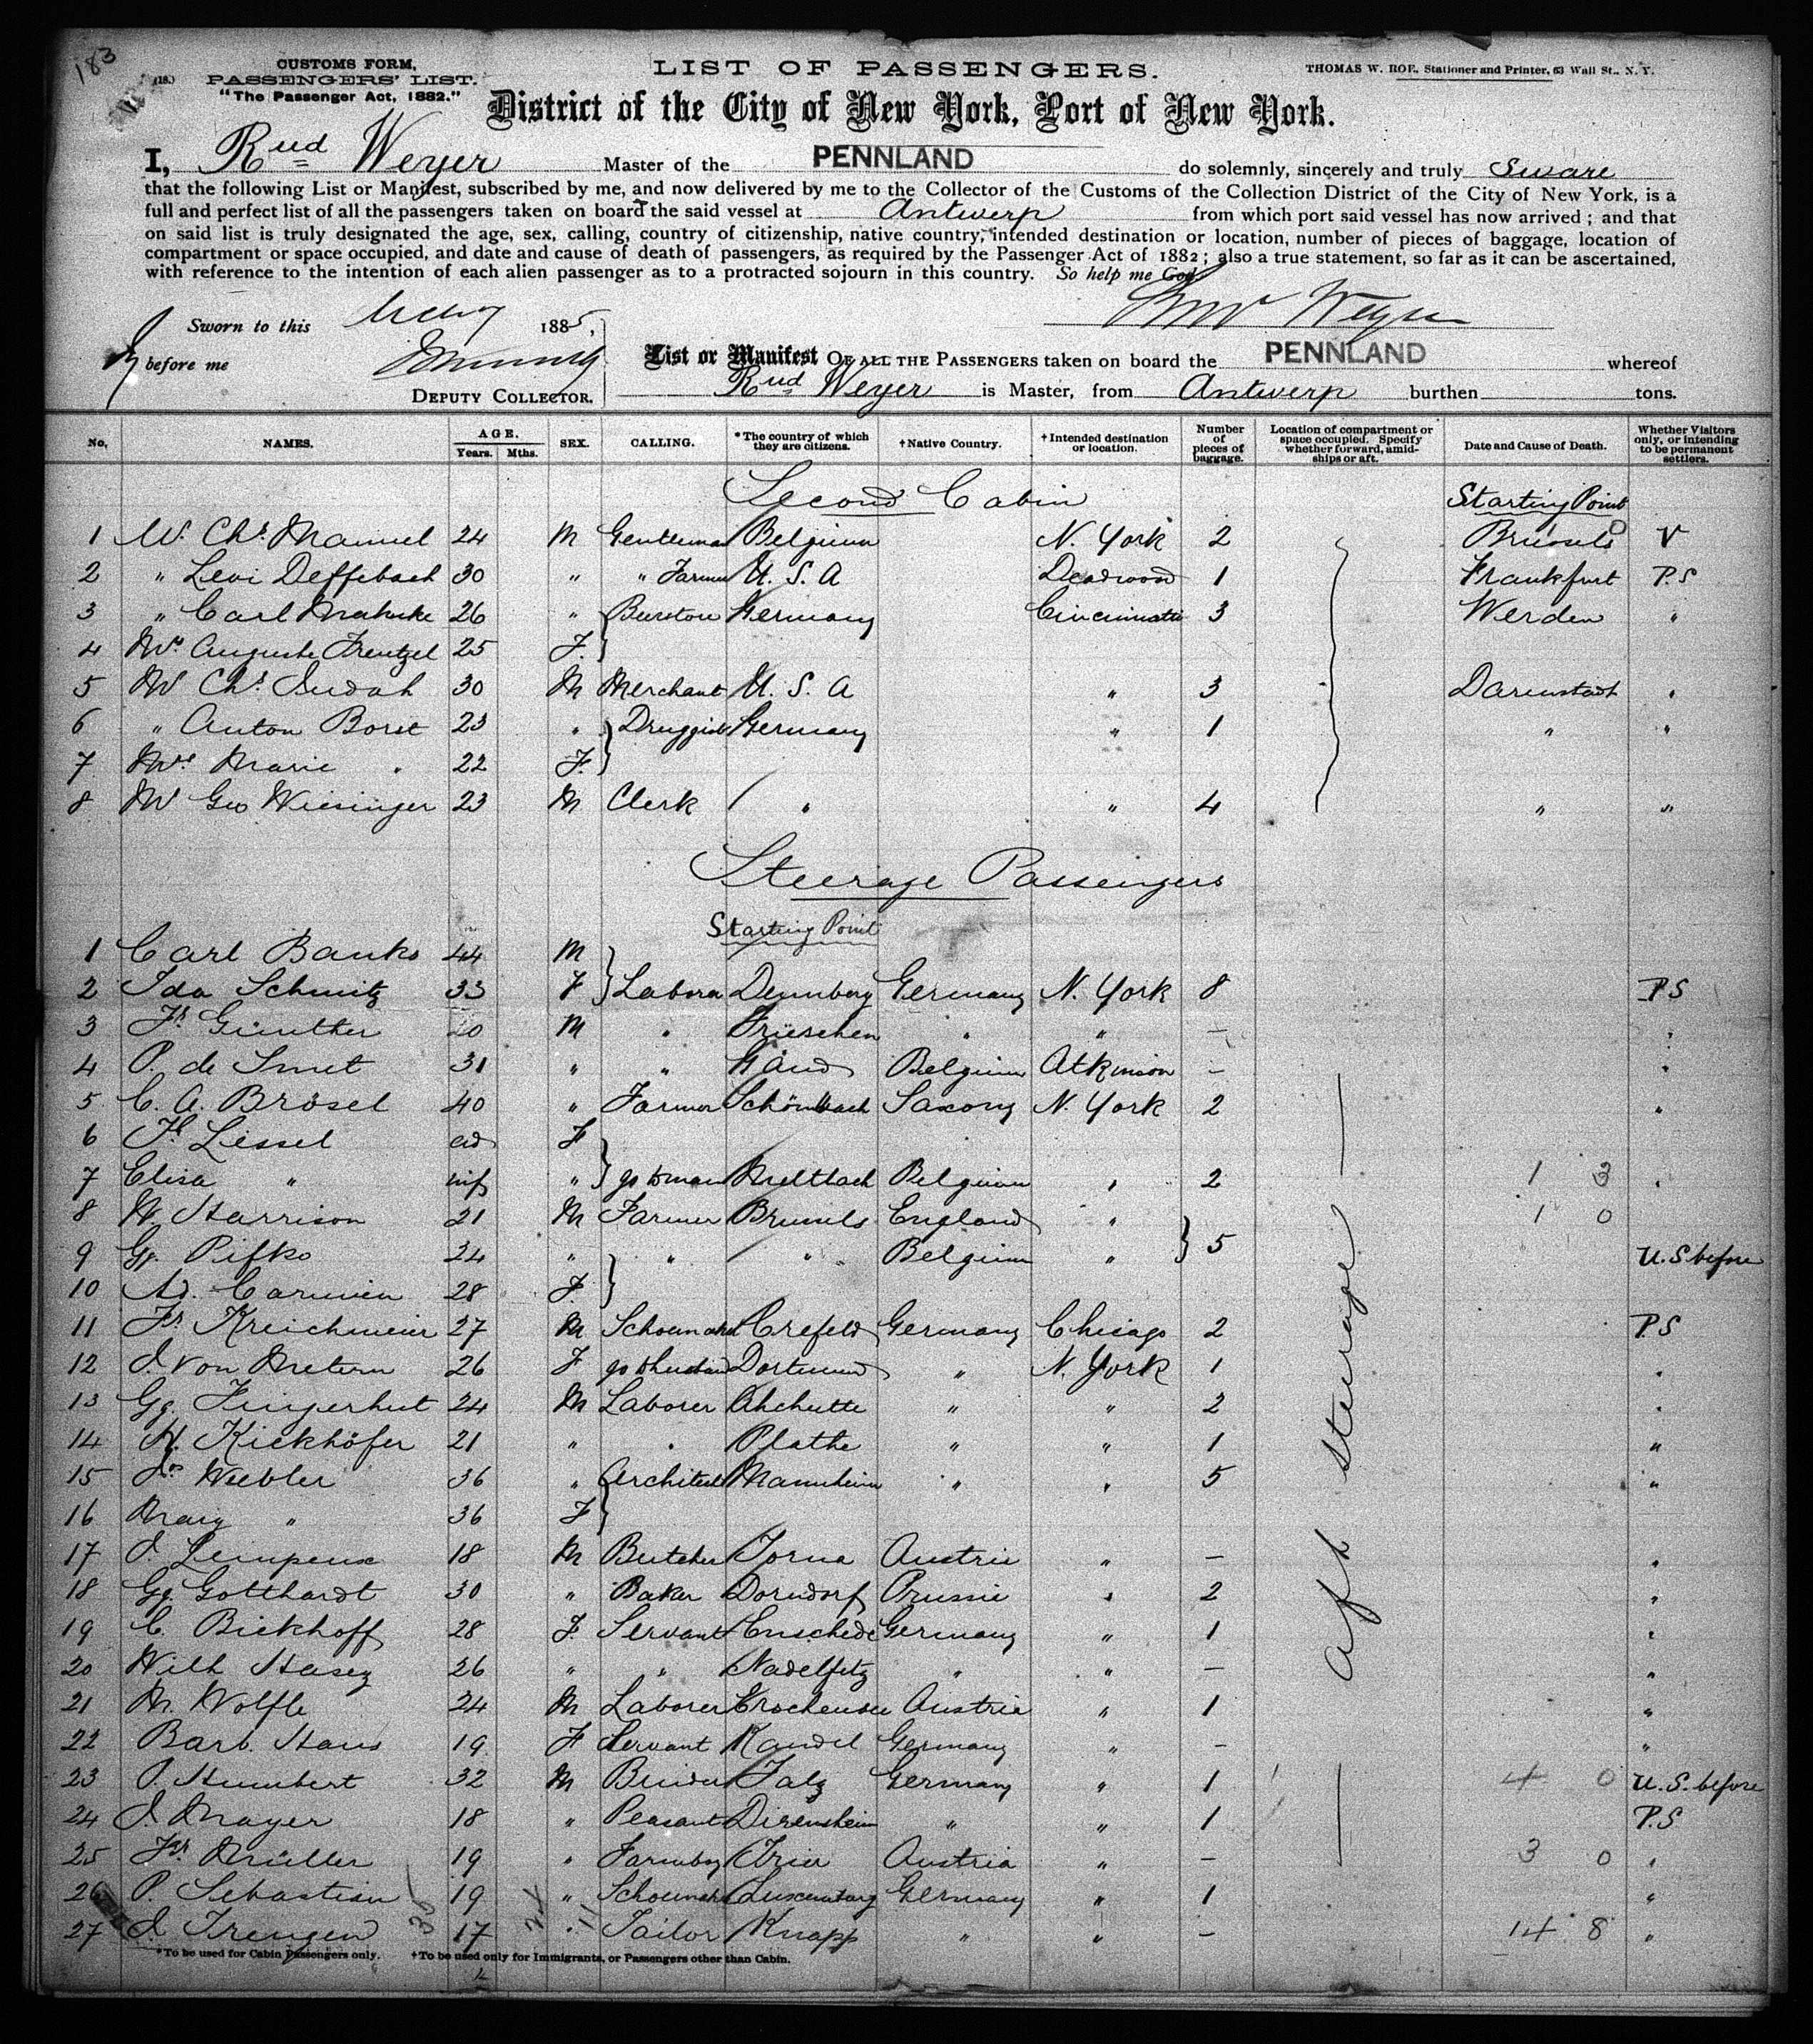 183
(18.)
CUSTOMS FORM,
PASSENGERS' LIST.
"The Passenger Act, 1882."
LIST OF PASSENGERS.
THOMAS W. ROE, Stationer and Printer, 63 Wall St., N. Y.
District of the City of New York, Port of New York.
I, Rud Weyer Master of the PENNLAND do solemnly, sincerely and truly Sware
that the following List or Manifest, subscribed by me, and now delivered by me to the Collector of the Customs of the Collection District of the City of New York, is a
full and perfect list of all the passengers taken on board the said vessel at Antwerp from which port said vessel has now arrived; and that
on said list is truly designated the age, sex, calling, country of citizenship, native country, intended destination or location, number of pieces of baggage, location of
compartment or space occupied, and date and cause of death of passengers, as required by the Passenger Act of 1882; also a true statement, so far as it can be ascertained,
with reference to the intention of each alien passenger as to a protracted sojourn in this country. So help me God.
Sworn to this 1885,
Weyer
before me
DEPUTY COLLECTOR.
List or Manifest OF ALL THE PASSENGERS taken on board the PENNLAND whereof
Rud Weyer is Master, from Antwerp burthen tons.
No. NAMES. AGE. Years. Mths. SEX. CALLING. *The country of which they are citizens. †Native Country. †Intended destination or location. Number of pieces of baggage. Location of compartment or space occupied. Specify whether forward, amidships or aft. Date and Cause of Death. Whether Visitors only, or intending to be permanent settlers.
Second Cabin Starting Point
1 Mr. Chs. Manuel 24 M Gentleman Belgium N. York 2 Brussels V
2 " Levi Deffebach 30 " " Farmer U. S. A Deadwood 1 Frankfurt P.S
3 " Carl Mahnke 26 " Germany Cincinnati 3 Werden "
4 Mrs Auguste Frentzel 25 F.
5 Mr Chs. Judah 30 M Merchant U. S. A " 3 Darmstadt "
6 " Anton Borst 23 " Druggist Germany " 1 " "
7 Mrs Marie " 22 F.
8 Mr Geo Wiesinger 23 M Clerk " " 4 " "
Steerage Passengers
Starting Point
1 Carl Banks 44 M
2 Ida Schmitz 33 F Labora Germany N. York 8 P.S
3 Fr. Günther 20 M " Frieschen " " — "
4 P. de Smet 31 " " Gand Belgium Atkinson — "
5 C. A. Brösel 40 " Farmer Schönbach Saxony N. York 2 "
6 Fr. Lissel ad F
7 Elisa " inf " Belgium " 2 1 3 "
8 W. Harrison 21 M Farmer Brussels England " 1 0
9 Gg. Pifko 24 " " " Belgium " 5 U.S. before
10 Ad. Carmien 28 F.
11 Fr. Kreichmeier 27 M Schoemaker Crefeld Germany Chicago 2 P.S
12 J. von Metern 26 F go to husband Dortmund " N. York 1 "
13 Gg. Fingerhut 24 M Laborer " " 2 "
14 H. Kickhöfer 21 " " Plathe " " 1 "
15 Jos Wiebler 36 " Architect Mannheim " " 5 "
16 Mary " 36 F
17 J. 18 M Butcher Austria " — "
18 Gg. Gotthardt 30 " Baker Dorndorf Prussia " 2 "
19 C. Bickhoff 28 F. Servant Enschede Germany " 1 "
20 Wilh Hasez 26 " " " " — "
21 M. Wolfle 24 M Laborer Austria " 1 "
22 Barb. Haus 19 F Servant Kandel Germany " — "
23 P. Humbert 32 M Falz Germany " 1 4 0 U.S. before
24 J. Mayer 18 " Peasant Direnstein " " 1 P.S
25 Fr. Müller 19 " Farmboy Trier Austria " — 3 0 "
26 P. Sebastian 19 " Schoemaker Luxemburg Germany " 1 "
27 J. Frengen 17 " Tailor Knapp " " — 14 8 "
aft steerage
*To be used for Cabin Passengers only. †To be used only for Immigrants, or Passengers other than Cabin.